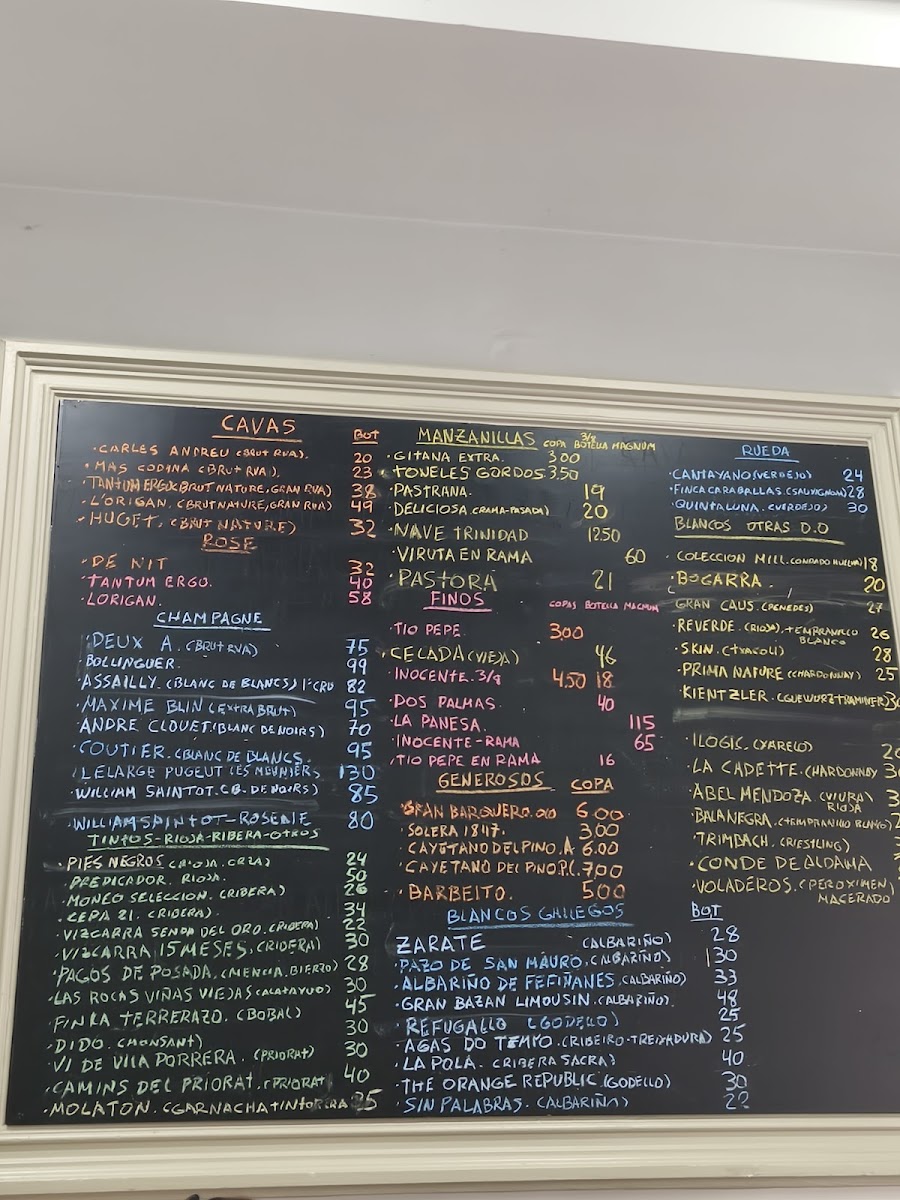 CAVAS BOT
·CARLES ANDREU (BRUT RVA). 20
·MAS CODINA (BRUT RVA). 23
·TANTUM ERGO (BRUT NATURE, GRAN RVA) 38
·L'ORIGAN. (BRUT NATURE, GRAN RVA) 49
·HUGET. (BRUT NATURE) 32
ROSE
·DE NIT 32
·TANTUM ERGO. 40
·LORIGAN. 58
CHAMPAGNE
·DEUX A. (BRUT RVA) 75
·BOLLINGUER. 99
·ASSAILLY. (BLANC DE BLANCS) 1º CRU 82
·MAXIME BLIN (EXTRA BRUT) 95
·ANDRE CLOUET (BLANC DE NOIRS) 70
·COUTIER. (BLANC DE BLANCS. 95
·LELARGE PUGEUT LES MEUNIERS 130
·WILLIAM SAINTOT. (B. DE NOIRS) 85
·WILLIAM SAINTOT-ROSE 80
TINTOS-RIOJA-RIBERA-OTROS
·PIES NEGROS (RIOJA. CRZA) 24
·PREDICADOR. RIOJA. 50
·MONEO SELECCION. (RIBERA) 26
·CEPA 21. (RIBERA). 34
·VIZCARRA SENDA DEL ORO. (RIBERA) 22
·VIZCARRA 15 MESES. (RIBERA) 30
·PAGOS DE POSADA. (MENCIA. BIERZO) 28
·LAS ROCAS VIÑAS VIEJAS (CALATAYUD) 30
·FINCA TERRERAZO. (BOBAL) 45
·DIDO. (MONSANT) 30
·VI DE VILA PORRERA. (PRIORAT) 30
·CAMINS DEL PRIORAT. (PRIORAT) 40
·MOLATON. (GARNACHA TINTORERA 35
MANZANILLAS COPA 3/8 BOTELLA MAGNUM
·GITANA EXTRA. 300
·TONELES GORDOS 3.50
·PASTRANA. 19
·DELICIOSA. (RAMA-PASADA) 20
·NAVE TRINIDAD 1250
·VIRUTA EN RAMA 60
·PASTORA 21
FINOS COPAS BOTELLA MAGNUM
·TIO PEPE. 300
·CELADA (VIEJA) 46
·INOCENTE. 3/8 4.50 18
·DOS PALMAS. 40
·LA PANESA. 115
·INOCENTE-RAMA 65
·TIO PEPE EN RAMA 16
GENEROSOS COPA
·GRAN BARQUERO. OLO 6.00
·SOLERA 1847. 300
·CAYETANO DEL PINO. A. 6.00
·CAYETANO DEL PINO. P.C. 7,00
·BARBEITO. 500
BLANCOS GALLEGOS BOT
ZARATE (ALBARIÑO) 28
·PAZO DE SAN MAURO. (ALBARIÑO) 30
·ALBARIÑO DE FEFIÑANES. (ALBARIÑO) 33
·GRAN BAZAN LIMOUSIN. (ALBARIÑO). 48
·REFUGALLO (GODELLO) 25
·AGAS DO TEMPO. (RIBEIRO-TREIXADURA) 25
·LA POLA. (RIBERA SACRA) 40
·THE ORANGE REPUBLIC (GODELLO) 30
·SIN PALABRAS. (ALBARIÑA) 22
RUEDA
·CANTAYANO (VERDEJO) 24
·FINCA CARABALLAS. (SAUVIGNON) 28
·QUINTALUNA. (VERDEJO) 30
BLANCOS OTRAS D.O
·COLECCION MILL. (CONDADO HUELVA) 18
·BOGARRA. 20
·GRAN CAUS. (PENEDES) 27
·REVERDE. (RIOJA), TEMPRANILLO BLANCO 26
·SKIN. (TXACOLI) 28
·PRIMA NATURE (CHARDONNAY) 25
·KIENTZLER. (GUEWURZTRAMINER)
·ILOGIC. (XARELO)
·LA CADETTE. (CHARDONNAY
·ABEL MENDOZA. (VIURA) RIOJA
·BALANEGRA. (TEMPRANILLO BLANCO)
·TRIMBACH. (RIESTLING)
·CONDE DE ALDAMA
·VOLADEROS. (PEROXIMEN) MACERADO